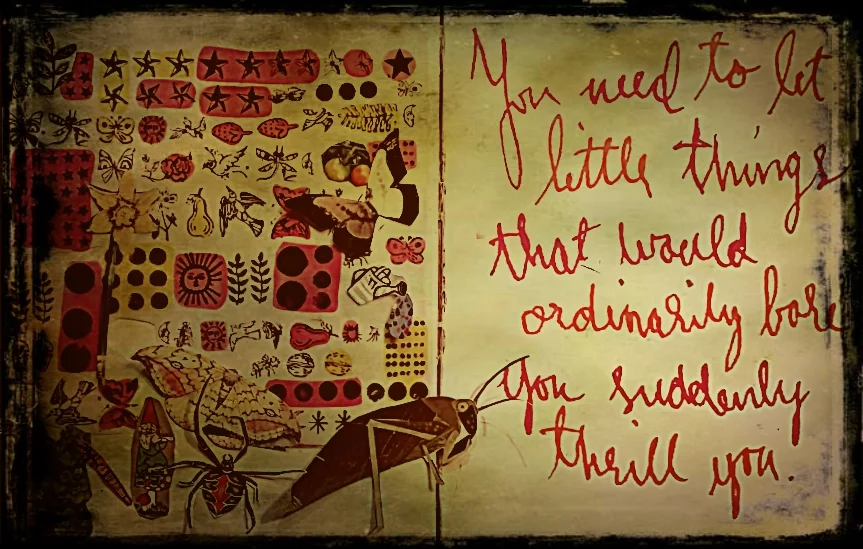 You need to let
little things
that would
ordinarily bore
you suddenly
thrill you.